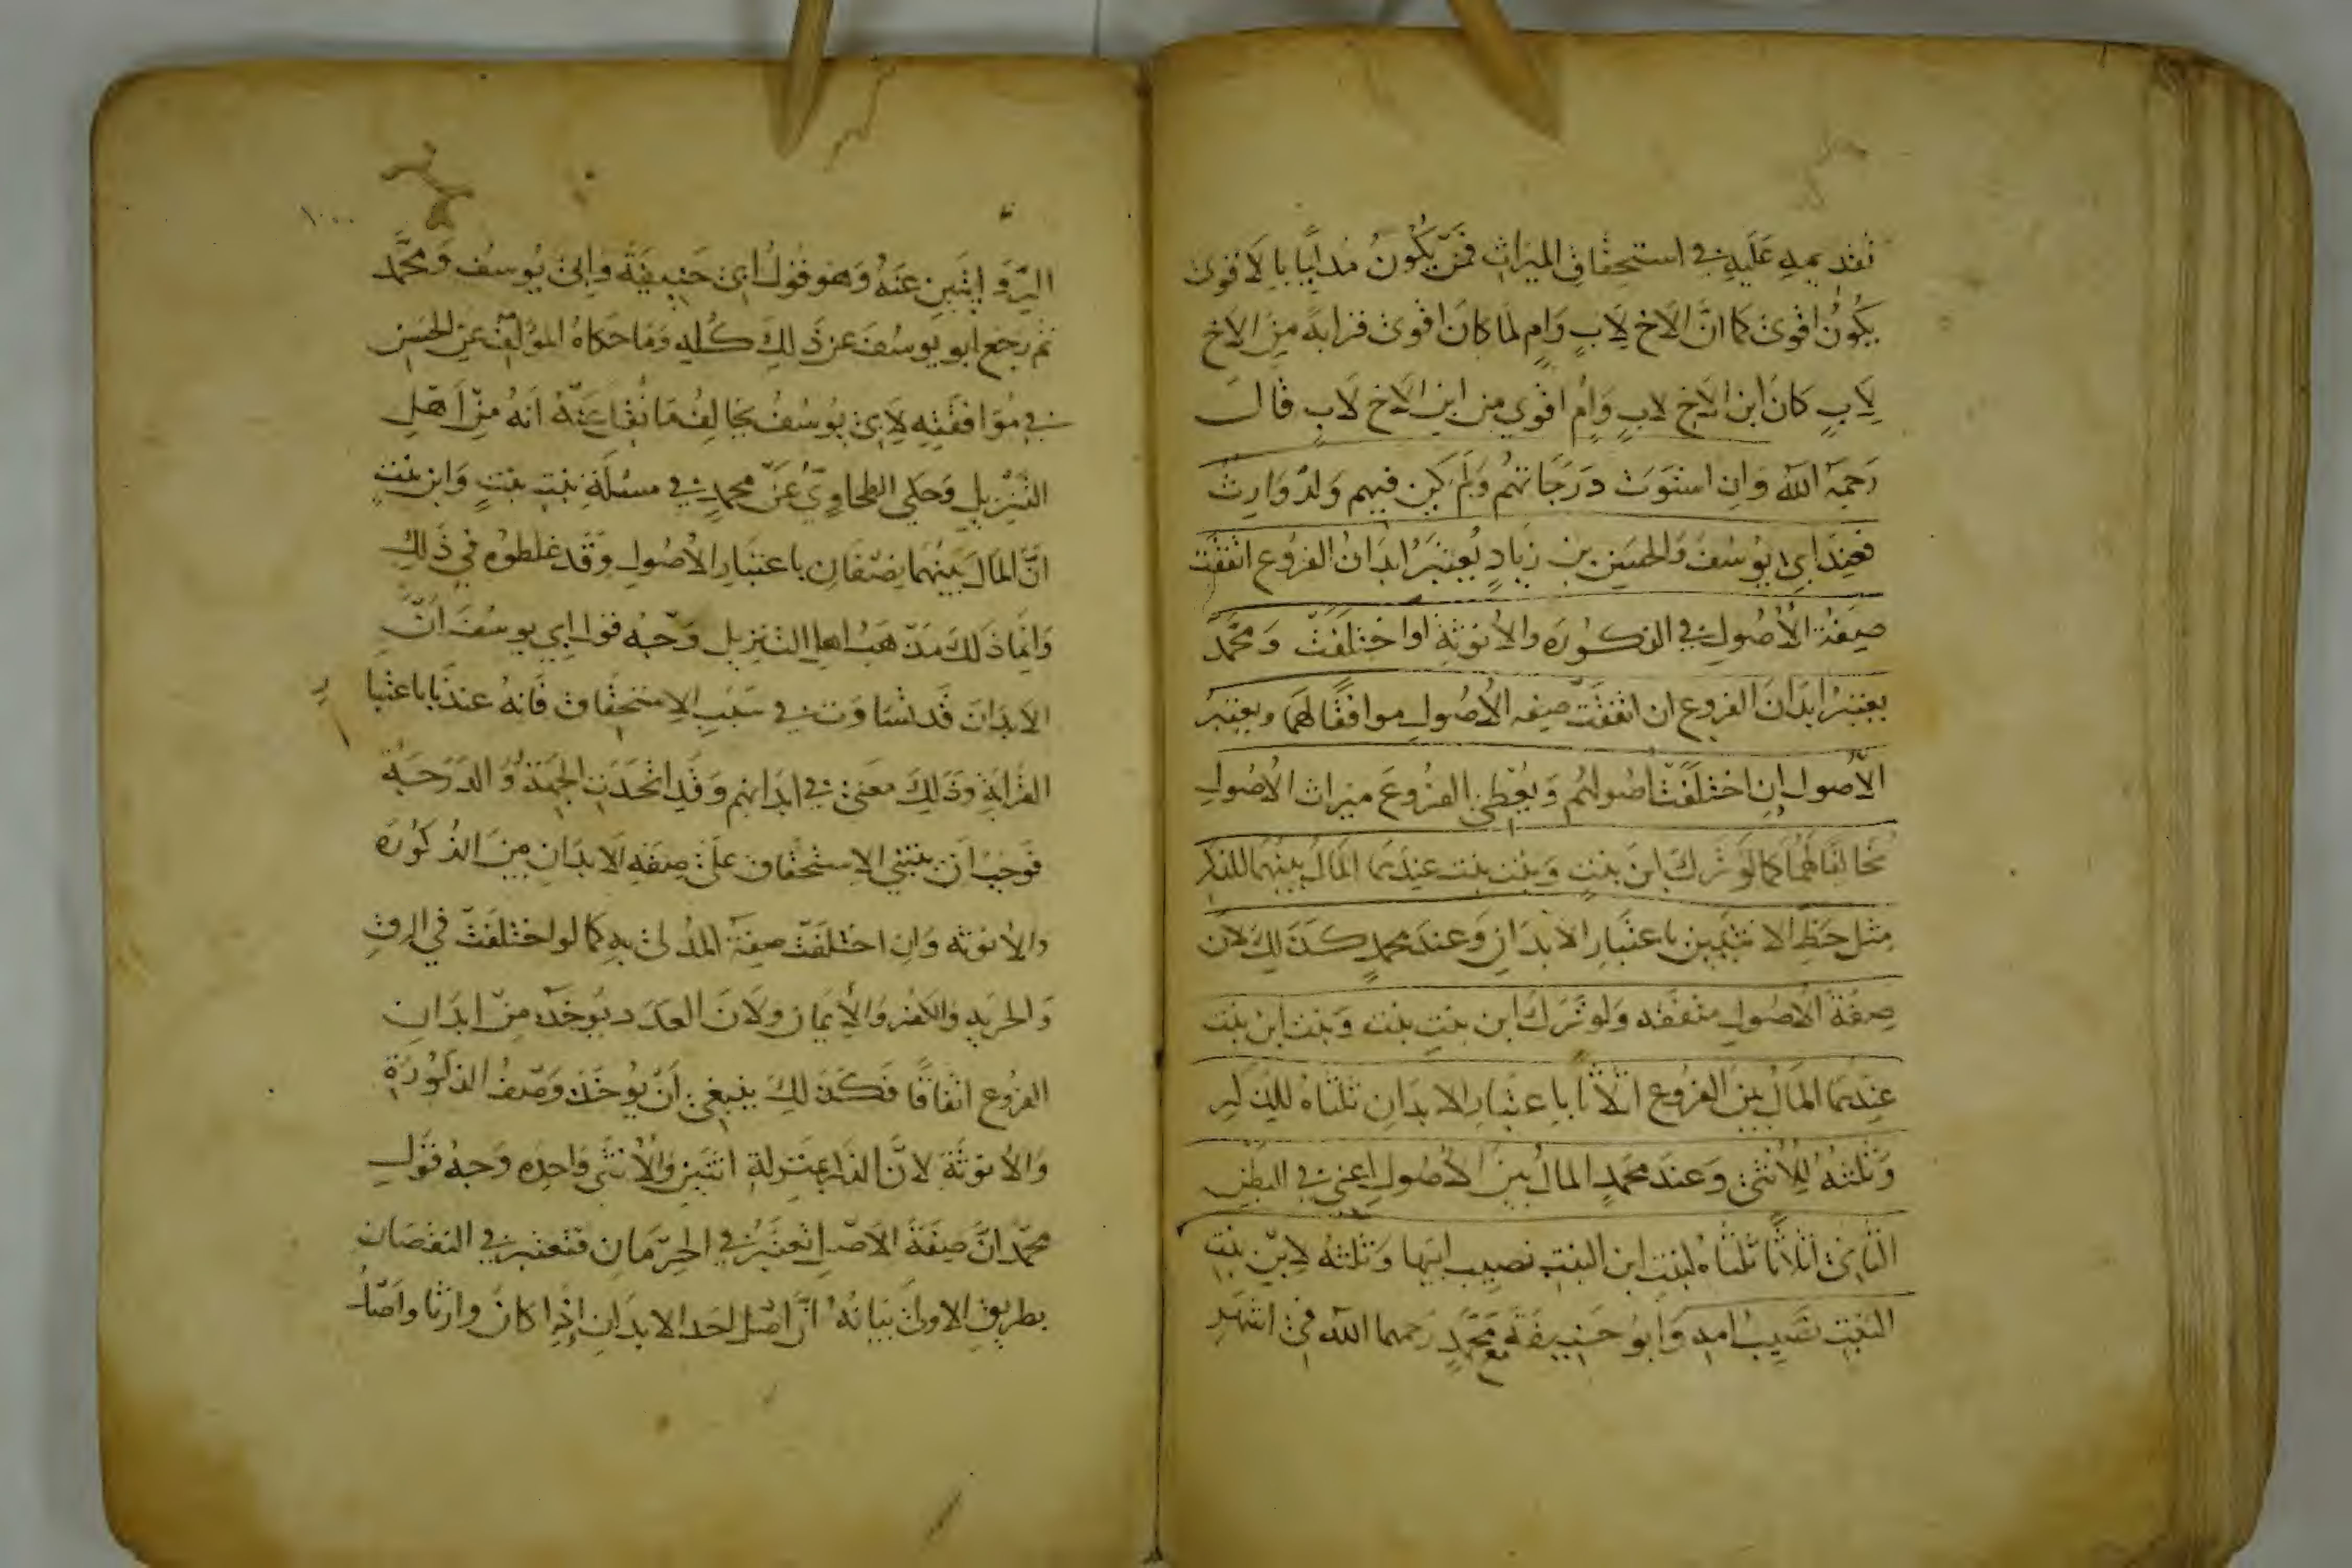 تقديمه عليه في استحقاق الميراث فمن يكون مدليا بالاقوى
يكون اقوى كما ان الاخ لاب وام لما كان اقوى قرابة من الاخ
لاب كان ابن الاخ لاب وام اقوى من ابن الاخ لاب قال
رحمه الله وان استوت درجاتهم ولم يكن فيهم ولد وارث
فعند ابي يوسف والحسن بن زياد يعتبر ابدان الفروع اتفقت
صفة الاصول في الذكورة والانوثة او اختلفت ومحمد
يعتبر ابدان الفروع ان اتفقت صفه الاصول موافقا لهما ويعتبر
الاصول ان اختلفت اصولهم ويعطى الفروع ميراث الاصول
مخالفا لهما كما لو ترك ابن بنت وبنت بنت عندهما المال بينهما للذكر
مثل حظ الانثيين باعتبار الابدان وعند محمد كذلك لان
صفة الاصول متفقه ولو ترك ابن بنت بنت وبنت ابن بنت
عندهما المال بين الفروع اثلاثا باعتبار الابدان ثلثاه للذكر
وثلثه للانثى وعند محمد المال بين الاصول اعني في البطن
الثاني اثلاثا ثلثاه لبنت ابن البنت نصيب ابيها وثلثه لابن بنت
البنت نصيب امه وابو حنيفة مع محمد رحمهما الله في اشهر
الروايتين عنه وهو قول ابي حنيفة وابي يوسف ومحمد
ثم رجع ابو يوسف عن ذلك كله وما حكاه المؤلف عن الحسن
في موافقته لابي يوسف يخالف ما نقل عنه انه من اهل
التنزيل وحكى الطحاوي عن محمد في مسئلة بنت بنت وابن بنت
ان المال بينهما نصفان باعتبار الاصول وقد غلطوه في ذلك
وانما ذلك مذهب اهل التنزيل وجه قول ابي يوسف ان
الابدان قد تساوت في سبب الاستحقاق فانه عندنا باعتبا
ر
القرابة وذلك معنى في ابدانهم وقد اتحدت الجهة والدرجة
فوجب ان يبتني الاستحقاق على صفه الابدان من الذكورة
والانوثه وان اختلفت صفة المدلى به كما لو اختلفت في الرق
والحريه والكفر والايمان ولان العدد يوخذ من ابدان
الفروع اتفاقا فكذلك ينبغي ان يوخذ وصف الذكورة
والانوثة لان الذكر بمنزلة انثيين والانثى واحده وجه قول
محمد ان صفة الاصل تعتبر في الحرمان فتعتبر في النقصان
بطريق الاولى بيانه ان اصل احد الابدان اذا كان وارثا واصل